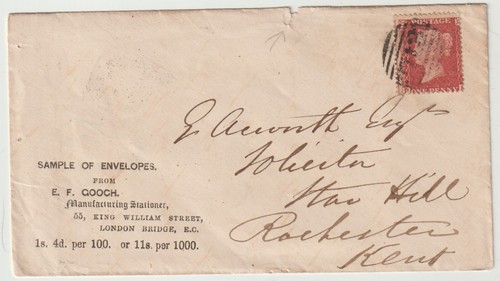 POSTAGE
ONE PENNY
E Acworth Esqre
Solicitor
Star Hill
Rochester
Kent
SAMPLE OF ENVELOPES.
FROM
E. F. GOOCH.
Manufacturing Stationer,
55, KING WILLIAM STREET,
LONDON BRIDGE, E.C.
1s. 4d. per 100. or 11s. per 1000.